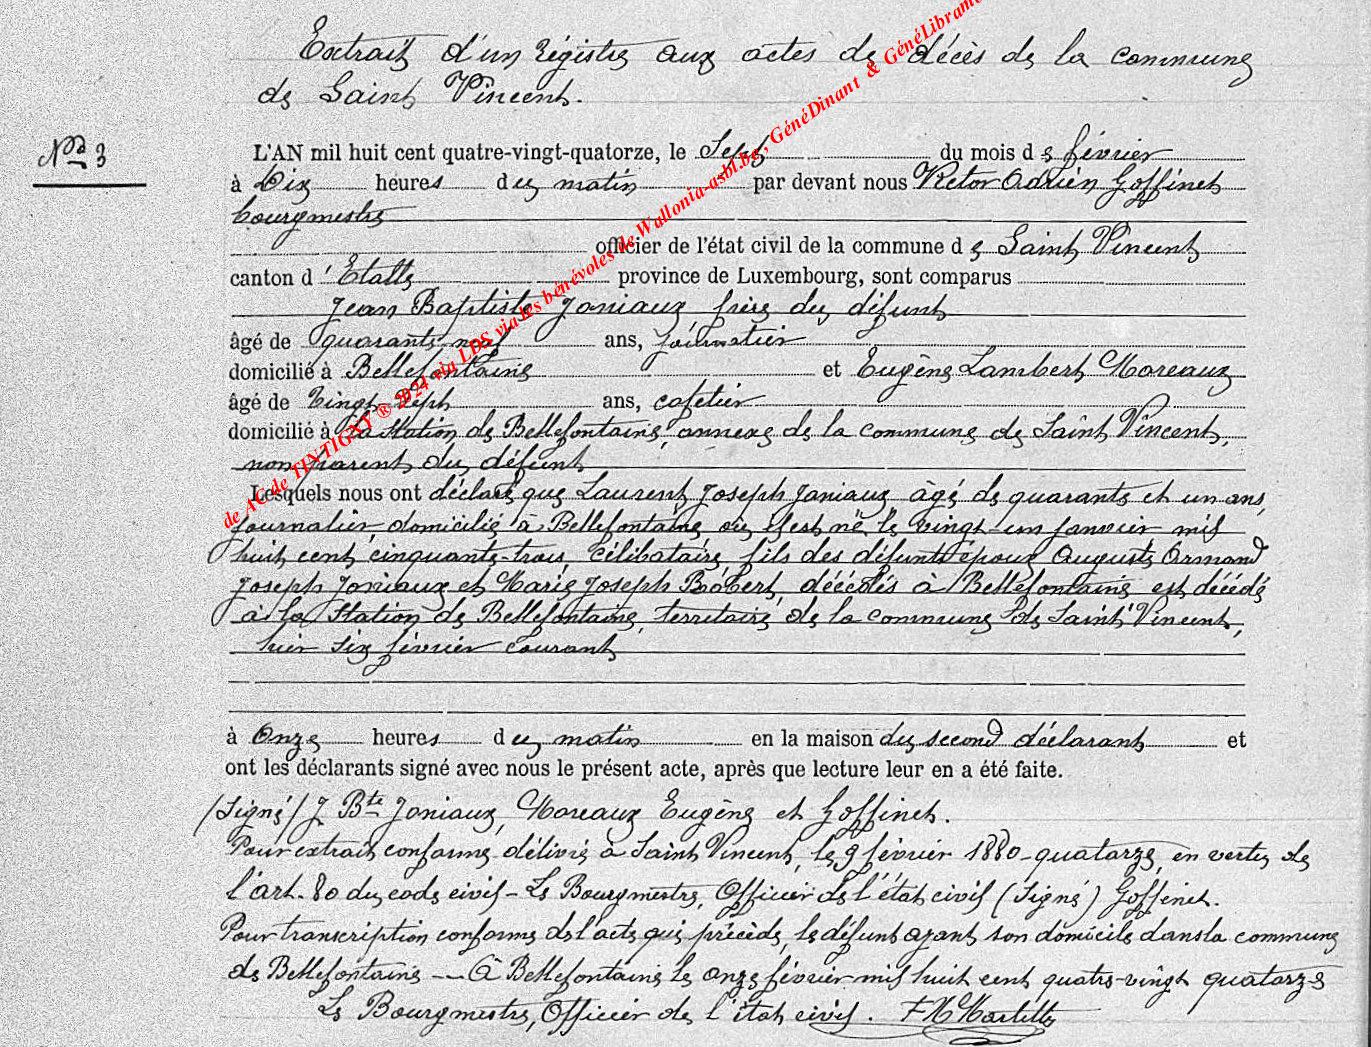 Extrait d'un régistre aux actes de décès de la commune
de Saint Vincent.
Nº 3
L'AN mil huit cent quatre-vingt-quatorze, le Sept du mois de février
à Dix heures du matin par devant nous Victor Adrien Goffinet
bourgmestre
officier de l'état civil de la commune de Saint Vincent
canton d'Etalle province de Luxembourg, sont comparus
Jean Baptiste Joniaux frère du défunt
âgé de quarante neuf ans, journalier
domicilié à Bellefontaine et Eugène Lambert Moreaux
âgé de vingt sept ans, cafetier
domicilié à la Station de Bellefontaine, annexe de la commune de Saint Vincent,
non parent du défunt
Lesquels nous ont déclaré que Laurent Joseph Joniaux âgé de quarante et un ans,
journalier, domicilié à Bellefontaine où il est né le vingt-un janvier mil
huit cent cinquante-trois, célibataire, fils des défunts époux Auguste Armand
Joseph Joniaux et Marie Joseph Robert, décédés à Bellefontaine est décédé
à la Station de Bellefontaine, territoire de la commune de Saint Vincent,
hier six février courant
à onze heures du matin en la maison du second déclarant et
ont les déclarants signé avec nous le présent acte, après que lecture leur en a été faite.
(Signé) J Bte Joniaux, Moreaux Eugène et Goffinet.
Pour extrait conforme délivré à Saint Vincent, le 9 février 1880-quatorze, en vertu de
l'art. 80 du code civil - Le Bourgmestre, Officier de l'état civil (Signé) Goffinet.
Pour transcription conforme de l'acte qui précède, le défunt ayant son domicile dans la commune
de Bellefontaine — A Bellefontaine le onze février mil huit cent quatre-vingt quatorze
Le Bourgmestre, Officier de l'état civil.
de AC de TINTIGNY ® 2024 via LDS via les bénévoles de Wallonia-asbl.bg, GénéDinant & GénéLibramont